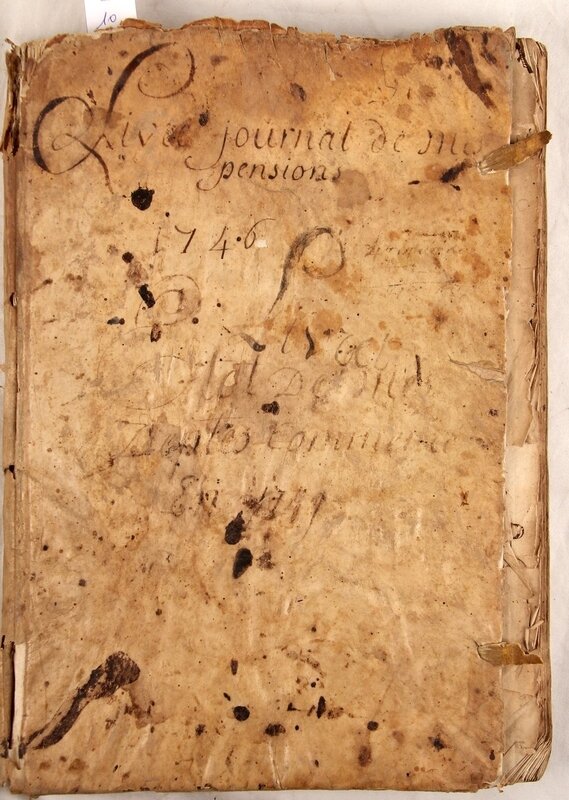 10
Livre journal de mes
pensions
1746
Livre
Etat De mes
Rentes commencé
En 1741